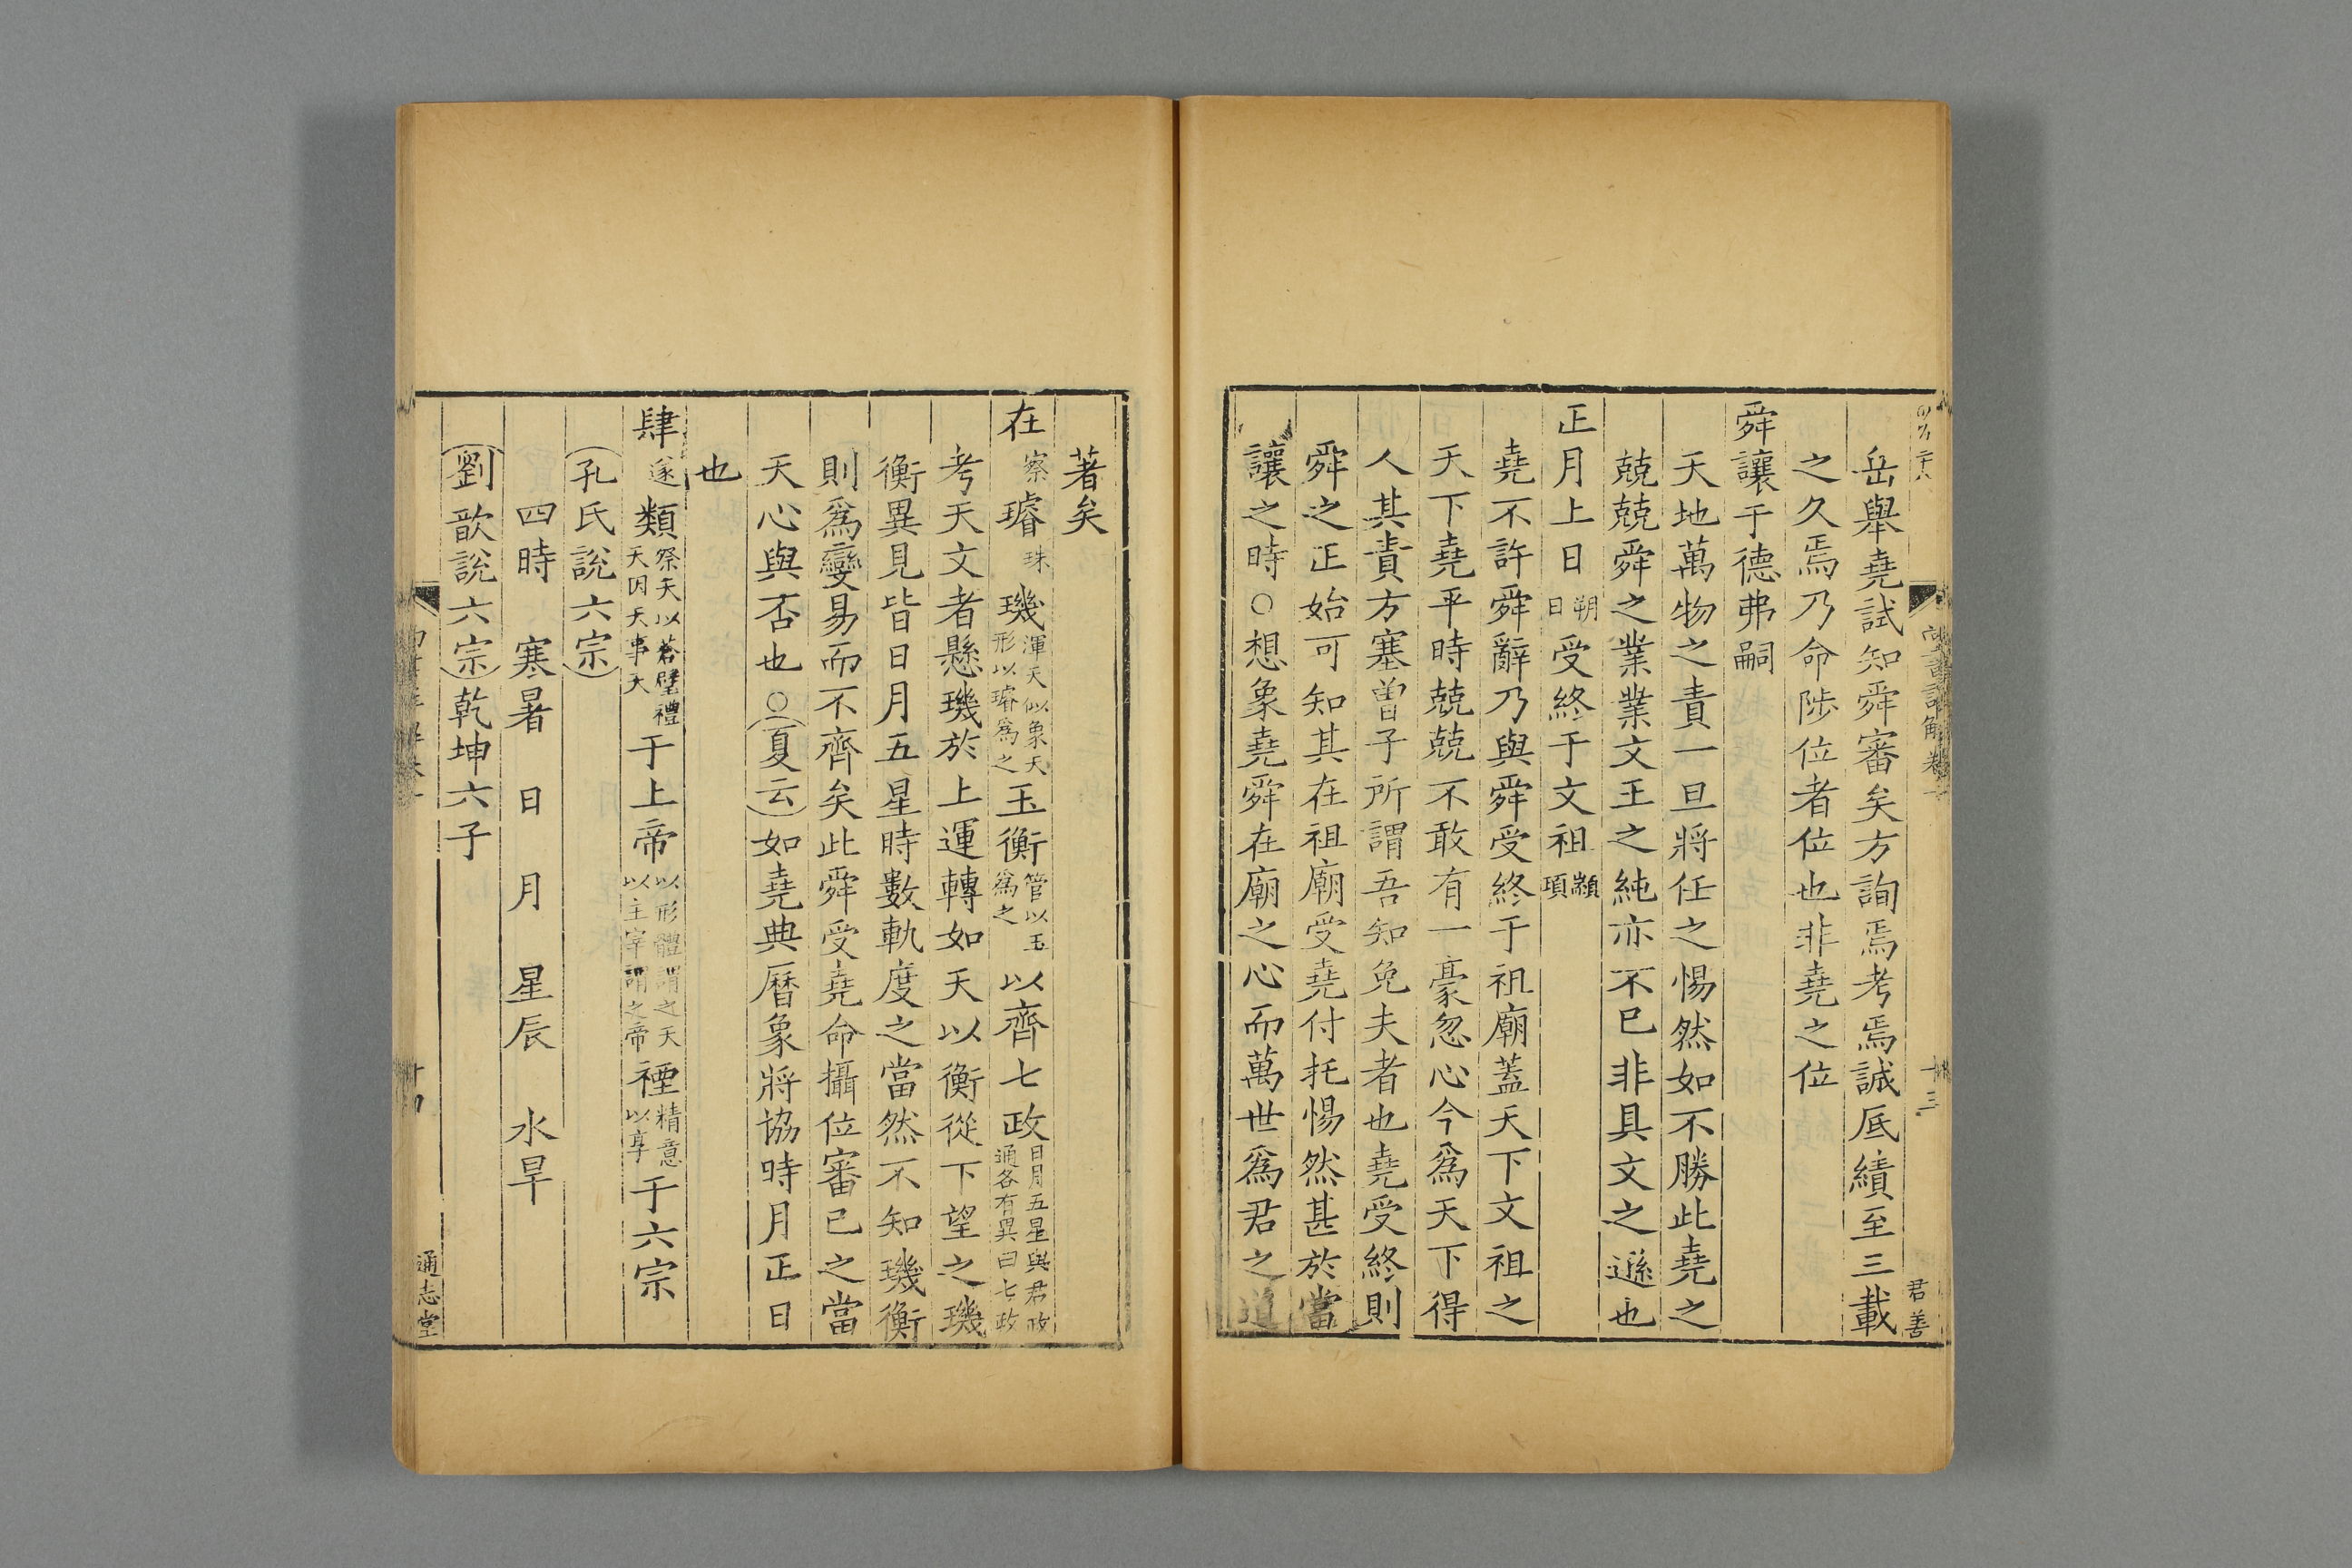 岳舉堯試知舜審矣方詢焉考焉誠底績至三載
之久焉乃命陟位者位也非堯之位
舜讓于德弗嗣
天地萬物之責一旦將任之惕然如不勝此堯之
兢兢舜之業業文王之純亦不已非具文之遜也
正月上日朔日受終于文祖顓頊
堯不許舜辭乃與舜受終于祖廟蓋天下文祖之
天下堯平時兢兢不敢有一豪忽心今爲天下得
人其責方塞曾子所謂吾知免夫者也堯受終則
舜之正始可知其在祖廟受堯付托惕然甚於當
讓之時○想象堯舜在廟之心而萬世爲君之道
君善
著矣
在察璿珠璣渾天似象天形以璿爲之玉衡管以玉爲之以齊七政日月五星與君政通各有異曰七政
考天文者懸璣於上運轉如天以衡從下望之璣
衡異見皆日月五星時數軌度之當然不知璣衡
則爲變易而不齊矣此舜受堯命攝位審已之當
天心與否也○夏云如堯典曆象將協時月正日
也
肆遂類祭天以蒼璧禮天因天事天于上帝以形體謂之天以主宰謂之帝禋精意以享于六宗
孔氏說六宗
四時 寒暑 日 月 星辰 水旱
劉歆說六宗乾坤六子
通志堂